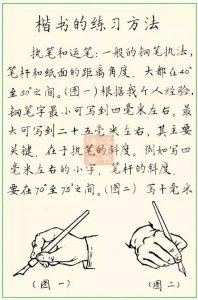 楷书的练习方法
执笔和运笔:一般的钢笔执法,
笔杆和纸面的距离角度,大都在40°
至50°之间。(图一)根据我个人经验,
钢笔字最小可写到四毫米左右,最
大可写到二十五毫米左右,其主要
关键,在于执笔的斜度。例如写四
毫米左右的小字,笔杆的斜度
要在70°至75°之间。(图二)写十毫米
(图一)
(图二)